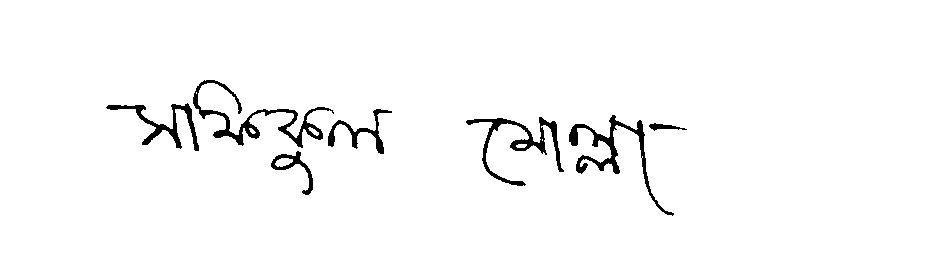 সাফিকুল মোল্লা